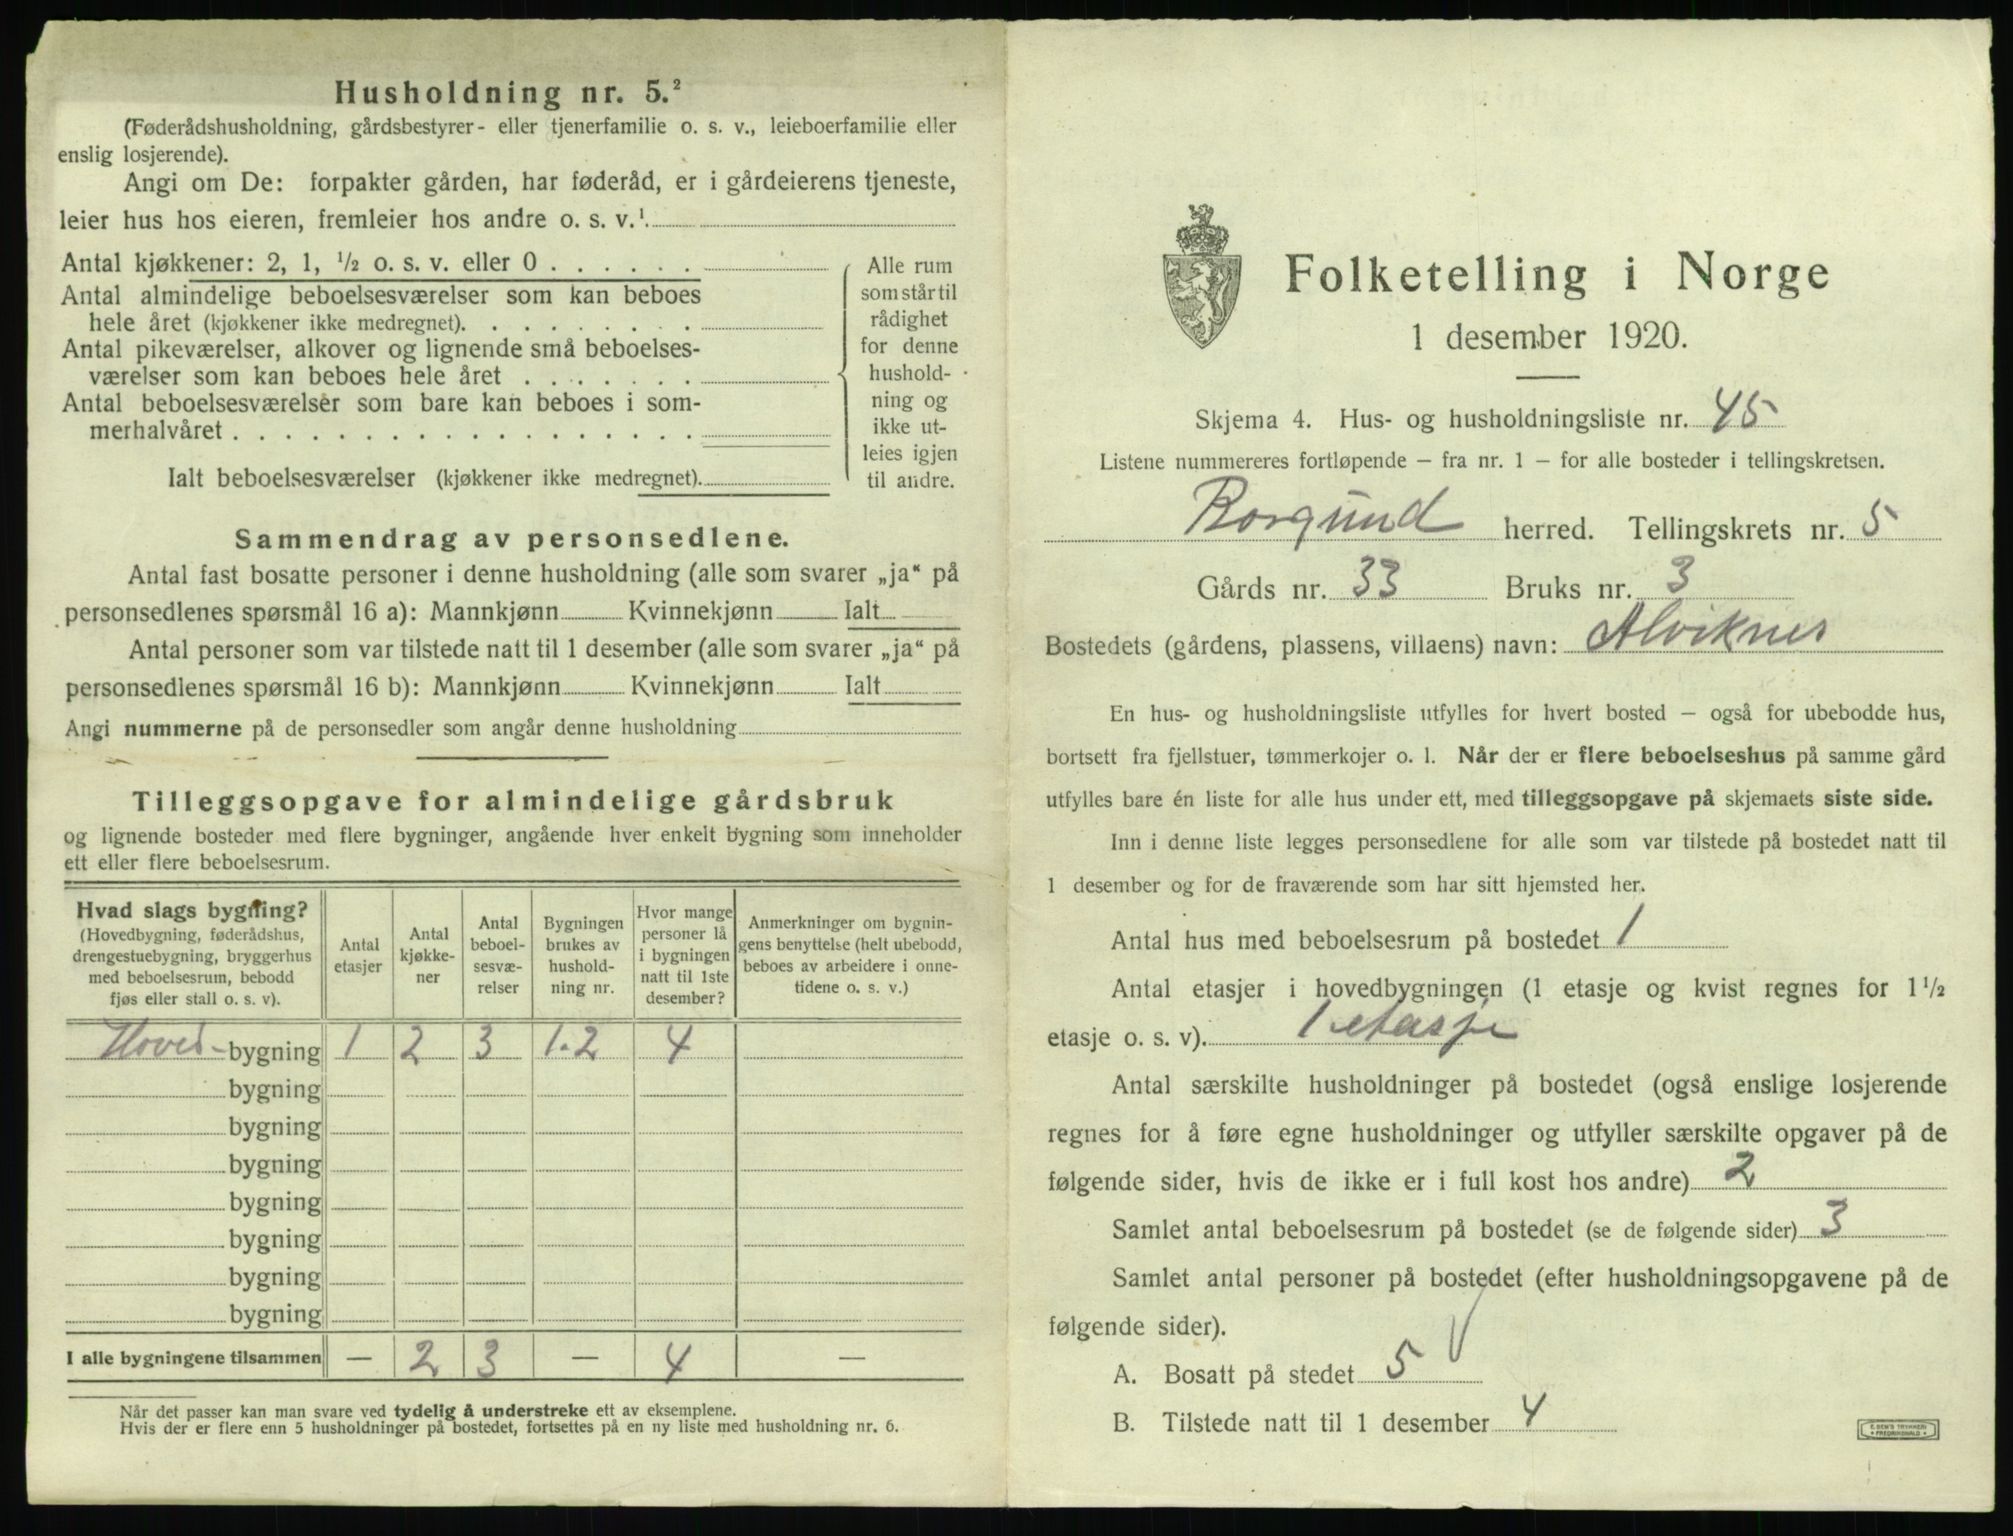 Husholdning nr. 5.²
(Føderådshusholdning, gårdsbestyrer- eller tjenerfamilie o. s. v., leieboerfamilie eller
enslig losjerende).
Angi om De: forpakter gården, har føderåd, er i gårdeierens tjeneste,
leier hus hos eieren, fremleier hos andre o. s. v.¹.
Antal kjøkkener: 2, 1, ½ o. s. v. eller 0 . . . . . .
Antal almindelige beboelsesværelser som kan beboes
hele året (kjøkkener ikke medregnet). . . . . . . . .
Antal pikeværelser, alkover og lignende små beboelses-
værelser som kan beboes hele året . . . . . . .
Antal beboelsesværelser som bare kan beboes i som-
merhalvåret . . . . . . . . . . . . . . . . . .
Ialt beboelsesværelser (kjøkkener ikke medregnet).
Alle rum
som står til
rådighet
for denne
hushold-
ning og
ikke ut-
leies igjen
til andre.
Sammendrag av personsedlene.
Antal fast bosatte personer i denne husholdning (alle som svarer „ja“ på
personsedlenes spørsmål 16 a): Mannkjønn Kvinnekjønn Ialt
Antal personer som var tilstede natt til 1 desember (alle som svarer „ja“ på
personsedlenes spørsmål 16 b): Mannkjønn Kvinnekjønn Ialt
Angi nummerne på de personsedler som angår denne husholdning
Tilleggsopgave for almindelige gårdsbruk
og lignende bosteder med flere bygninger, angående hver enkelt bygning som inneholder
ett eller flere beboelsesrum.
Hvad slags bygning?
(Hovedbygning, føderådshus,
drengestuebygning, bryggerhus
med beboelsesrum, bebodd
fjøs eller stall o. s. v).
Antal
etasjer
Antal
kjøkke-
ner
Antal
beboel-
sesvæ-
relser
Bygningen
brukes av
hushold-
ning nr.
Hvor mange
personer lå
i bygningen
natt til 1ste
desember?
Anmerkninger om bygnin-
gens benyttelse (helt ubebodd,
beboes av arbeidere i onne-
tidene o. s. v.)
Hoved- bygning 1 2 3 1.2 4
bygning
bygning
bygning
bygning
bygning
bygning
bygning
I alle bygningene tilsammen — 2 3 — 4 —
Når det passer kan man svare ved tydelig å understreke ett av eksemplene.
Hvis der er flere enn 5 husholdninger på bostedet, fortsettes på en ny liste med husholdning nr. 6.
Folketelling i Norge
1 desember 1920.
Skjema 4. Hus- og husholdningsliste nr. 45
Listene nummereres fortløpende — fra nr. 1 — for alle bosteder i tellingskretsen.
Borgund herred. Tellingskrets nr. 5
Gårds nr. 33 Bruks nr. 3
Bostedets (gårdens, plassens, villaens) navn: Alviknes
En hus- og husholdningsliste utfylles for hvert bosted — også for ubebodde hus,
bortsett fra fjellstuer, tømmerkojer o. l. Når der er flere beboelseshus på samme gård
utfylles bare én liste for alle hus under ett, med tilleggsopgave på skjemaets siste side.
Inn i denne liste legges personsedlene for alle som var tilstede på bostedet natt til
1 desember og for de fraværende som har sitt hjemsted her.
Antal hus med beboelsesrum på bostedet 1
Antal etasjer i hovedbygningen (1 etasje og kvist regnes for 1½
etasje o. s. v). 1 etasje
Antal særskilte husholdninger på bostedet (også enslige losjerende
regnes for å føre egne husholdninger og utfyller særskilte opgaver på de
følgende sider, hvis de ikke er i full kost hos andre) 2
Samlet antal beboelsesrum på bostedet (se de følgende sider) 3
Samlet antal personer på bostedet (efter husholdningsopgavene på de
følgende sider).
A. Bosatt på stedet 5
B. Tilstede natt til 1 desember 4